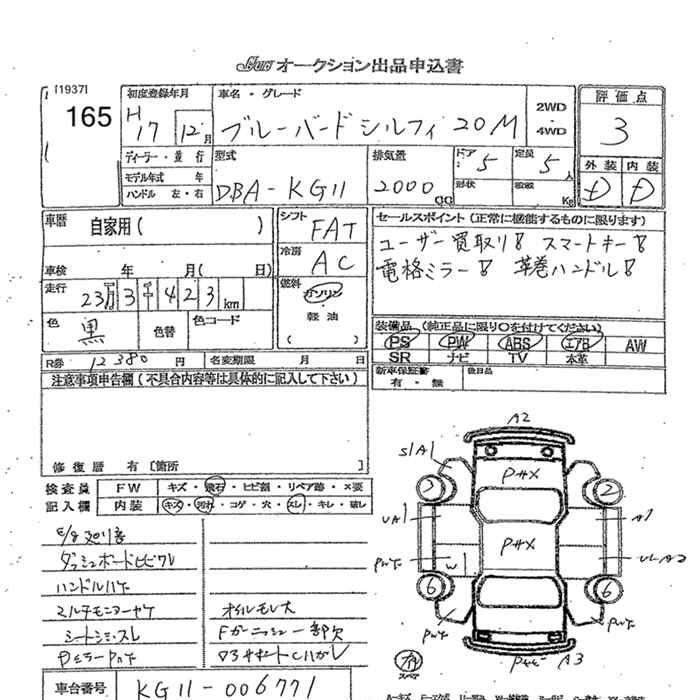 オークション出品申込書
[1937]
165
初度登録年月
H17 12月
車名・グレード
ブルーバードシルフィ 20M
2WD・4WD
評価点
3
ディーラー・並行
モデル年式 年
ハンドル 左・右
型式
DBA-KG11
排気量
2000 cc
ドア
5
形状
定員
5人
積載
Kg
外装 内装
D D
車歴
自家用( )
シフト
FAT
冷房
AC
セールスポイント(正常に機能するものに限ります)
ユーザー買取り!! スマートキー!!
電格ミラー!! 革巻ハンドル!!
車検 年 月( 日)
走行
23万3千423km
燃料
ガソリン
・
軽油
( )
色
黒
色替
色コード
装備品(純正品に限り○を付けてください)
PS PW ABS エアB AW
SR ナビ TV 本革
R券 12380円
名変期限 月 日
新車保証書
有・無
後日品
注意事項申告欄(不具合内容等は具体的に記入して下さい)
修復歴 有〔箇所 〕
検査員
記入欄
FW キズ・飛石・ヒビ割・リペア跡・×要
内装 キズ・汚れ・コゲ・穴・スレ・キレ・破レ
ダッシュボードヒビワレ
ハンドルハゲ
マルチモニターヤケ
オイルモレ大
シートシミ・スレ
Fガーニッシュ一部欠
車台番号
KG11-006771
A2
S1A1
PHX
2
2
UA1
A1
PHX
W1
6
6
A3
スペア